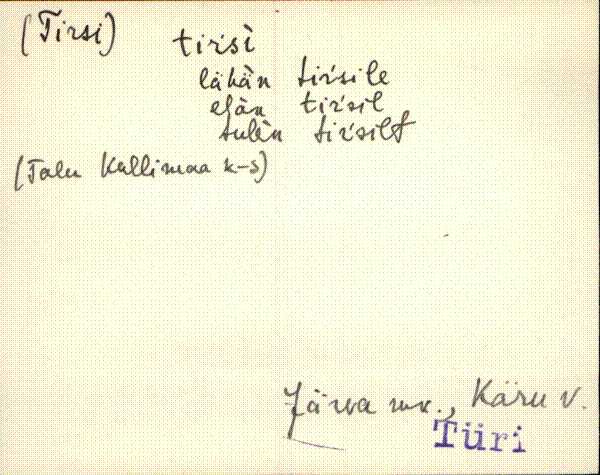 (Tirsi) tiŕsì
lähän tiŕsile
elän tiŕsil
tulen tiŕsilt
(Talu Kullimaa k-s)
Järva mk., Käru v.
Türi